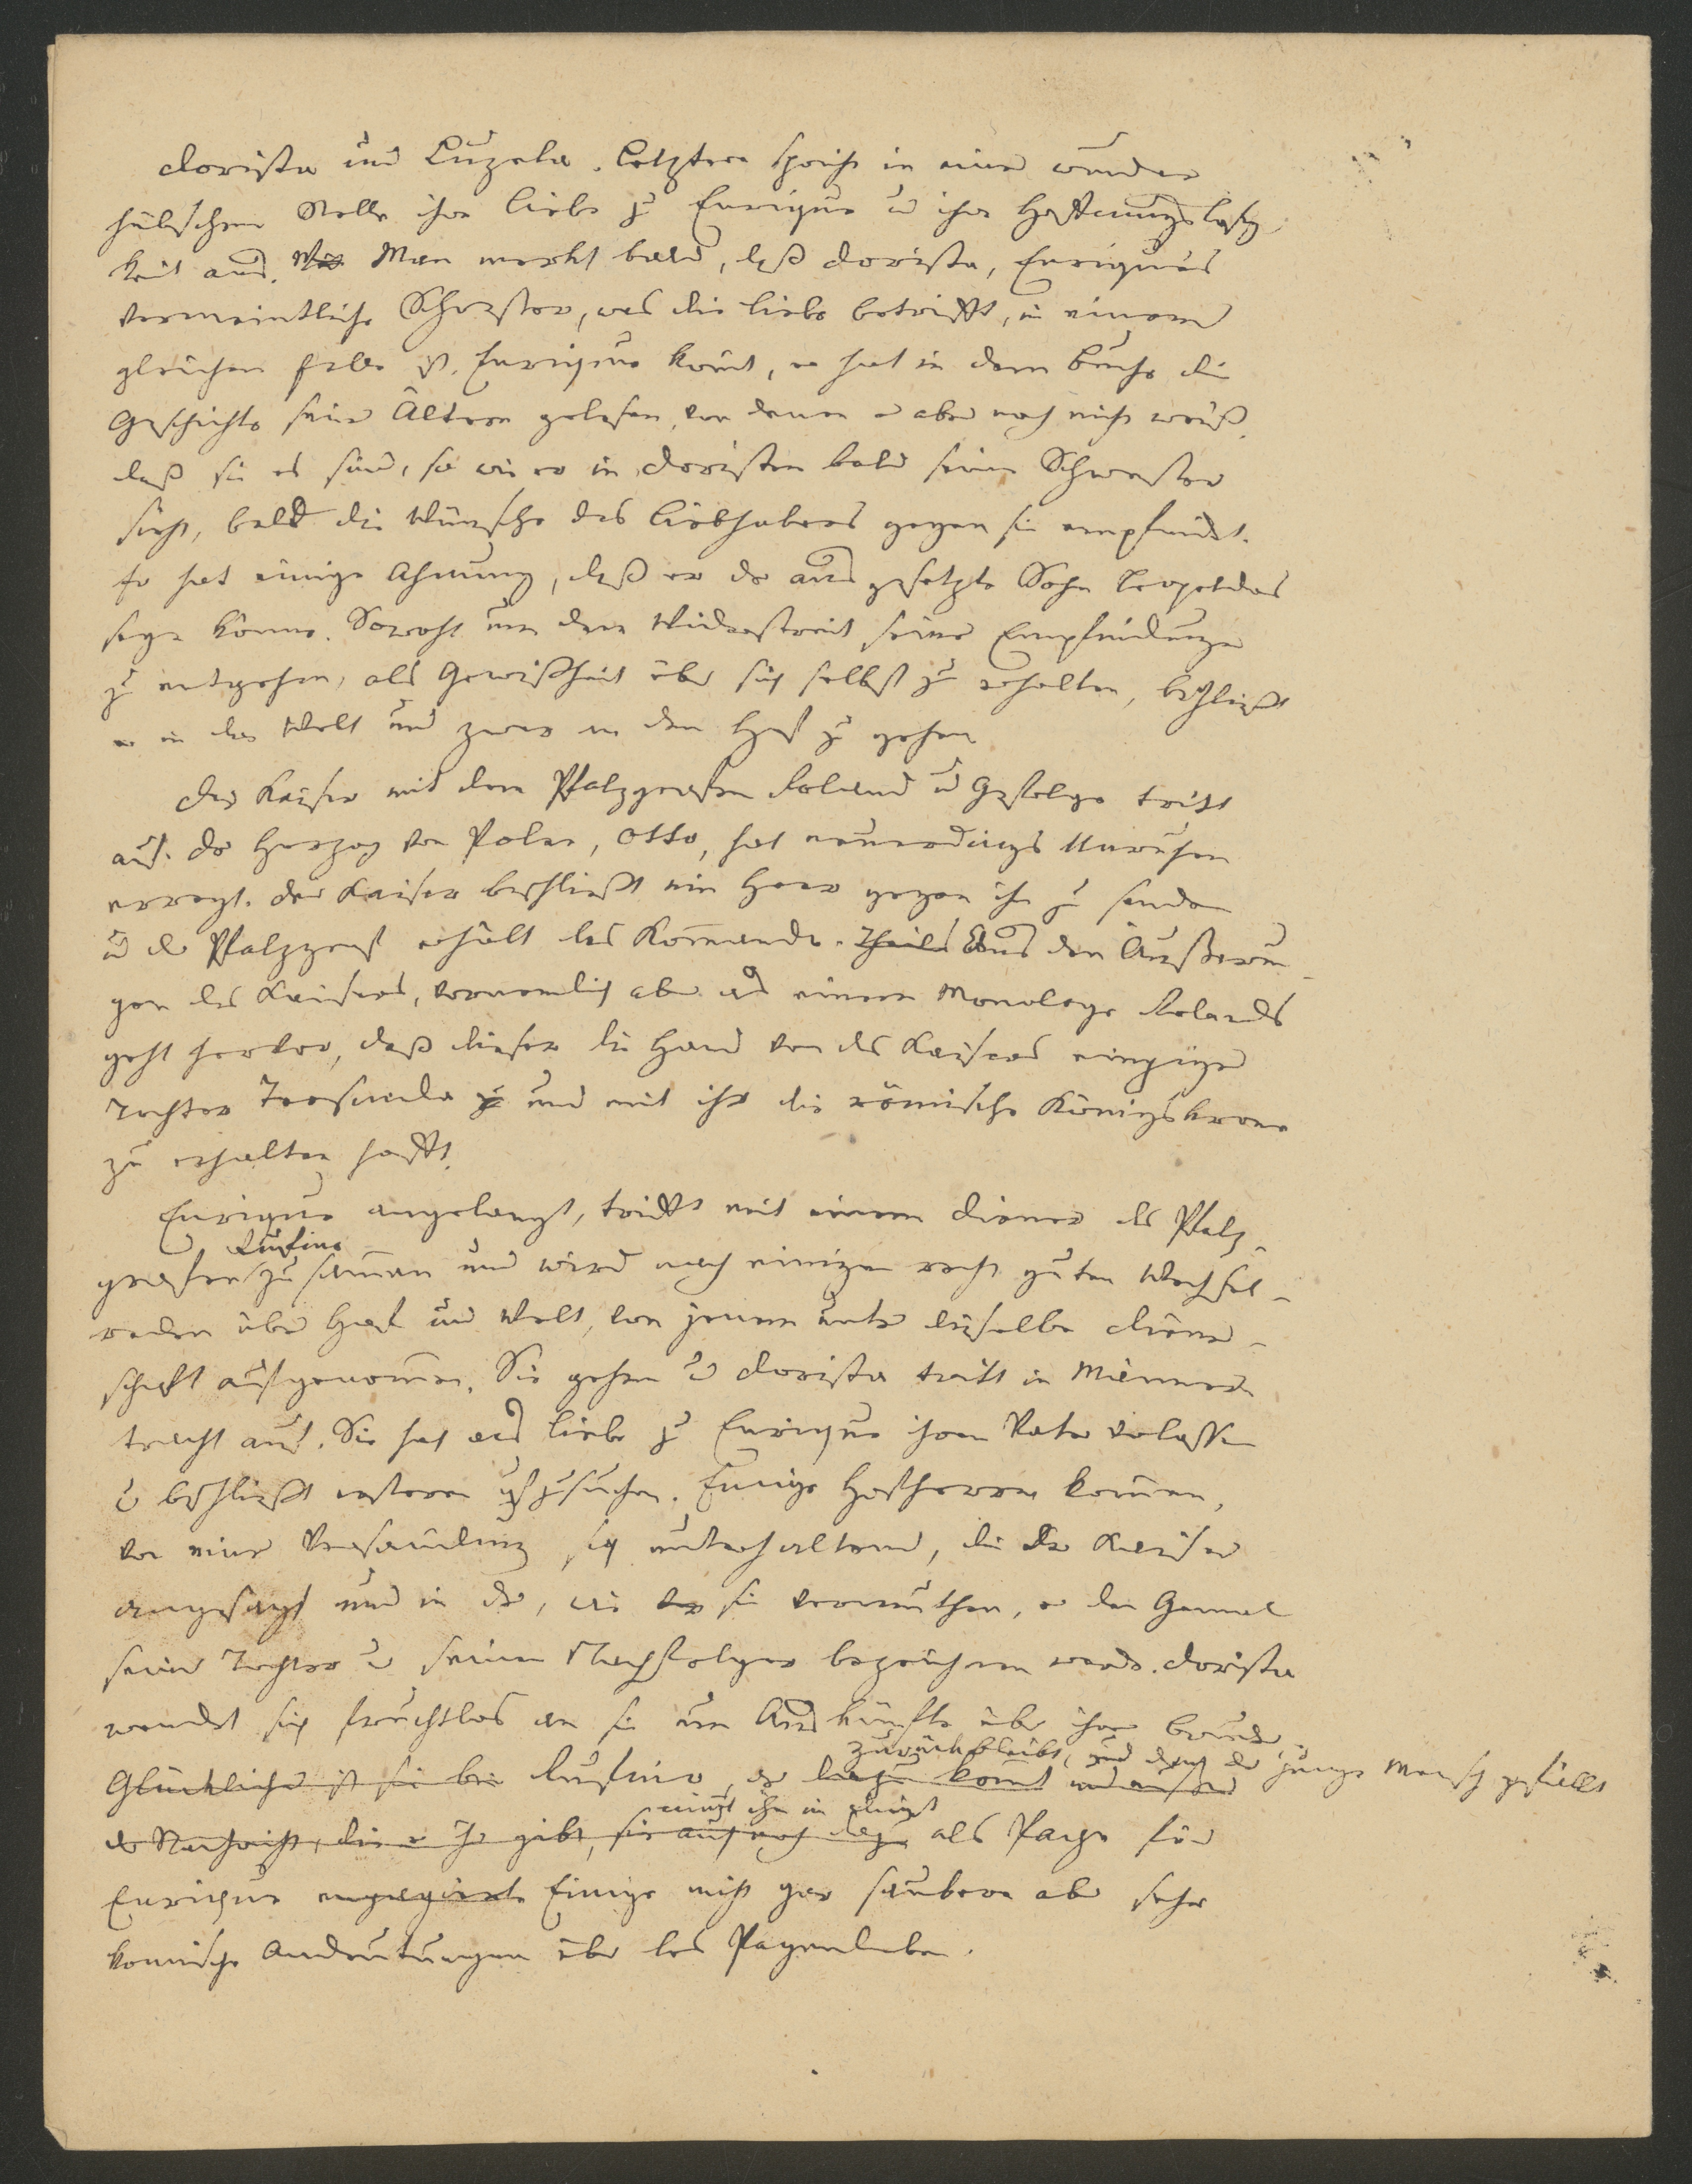 Dorista und Luzela. Letztere spricht in einer wunder
hübschen Stelle ihre Liebe zu Enrique u ihre Hoffnungslosig-
keit aus. Man merkt bald, daß Dorista, Enriques
vermeintliche Schwester, was die Liebe betrifft, in einem
gleichen Falle ist. Enrique kömt, er hat in dem Buche die
Geschichte seiner Ältern gelesen, von denen er aber noch nicht weiß,
daß sie es sind, so wie er in Doristen bald seine Schwester
sieht, bald die Wünsche des Liebhabers gegen sie empfindet.
Er hat einige Ahnung, daß er der ausgesetzte Sohn Leopoldos
seyn könne. Sowohl um dem Widerstreit seiner Empfindungen
zu entgehen, als Gewißheit über sich selbst zu erhalten, beschließt
er in die Welt und zwar an den Hof zu gehen
Der Kaiser mit dem Pfalzgrafen Roland u Gefolge tritt
auf. Der Herzog von Polen, Otto, hat neuerdings Unruhen
erregt. Der Kaiser beschließt ein Heer gegen ihn zu senden
u der Pfalzgraf erhält das Kommando. Theils Aus den Äußerun-
gen des Kaisers, vornemlich aber aus einem Monologe Rolands
geht hervor, daß dieser die Hand von des Kaisers einziger
Tochter Teosinda zu und mit ihr die römische Königskrone
zu erhalten hofft.
Enrique angelangt, trifft mit einem Diener des Pfalz-
Rufino
grafen zusammen und wird nach einigen recht guten Wechsel-
reden über Hof und Welt, von jenem unter dieselbe Diener-
schaft aufgenommen. Sie gehen u Dorista tritt in Männer
tracht auf. Sie hat aus Liebe zu Enrique ihren Vater verlassen
u beschließt ersteren aufzusuchen. Einige Hofherren kommen,
von einer Versammlung sich unterhaltend, die der Kaiser
angesagt und in der, wie sie vermuthen, er den Gemal
seiner Tochter u seinen Nachfolger bezeichnen werde. Dorista
wendet sich fruchtlos an sie um Auskünfte über ihren Bruder,
zurückbleibt, und dem der junge Mensch gefällt
Glücklicher ist sie bei Rufino, der dazu kömt und außer
nimt ihn in Dienst
der Nachricht, die er ihr gibt, sie auch noch dazu als Page für
Enrique engagiert Einige nicht gar saubere aber sehr
komische Andeutungen über das Pagenleben.